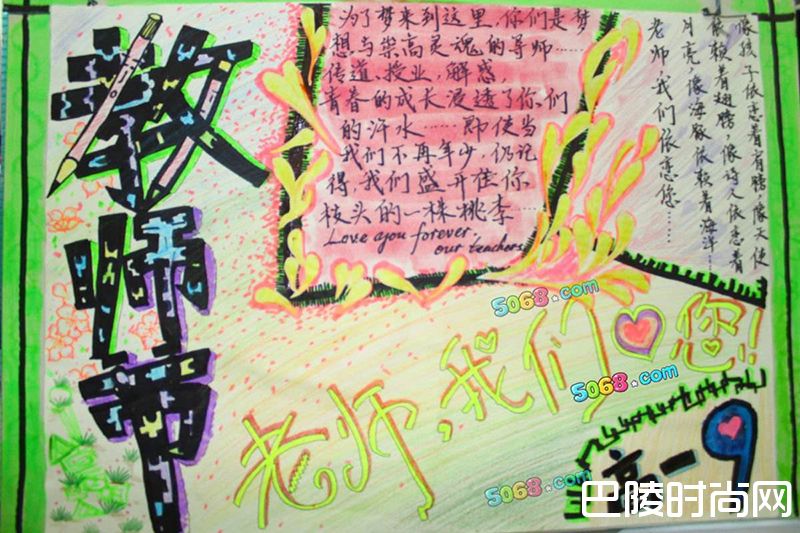 教师节
为了梦来到这里,你们是梦
想与崇高灵魂的导师……
传道、授业、解惑,
青春的成长浸透了你们
的汗水……即使当
我们不再年少,仍记
得,我们盛开在你
枝头的一株桃李
Love you forever,
our teachers
像孩子依恋着肩膀像天使
依赖着翅膀像诗人依恋着
月亮像海豚依赖着海洋…
老师,我们依恋您……
5068.com
老师,我们您!!
5068.com
高一9
5068.com
巴陵时尚网